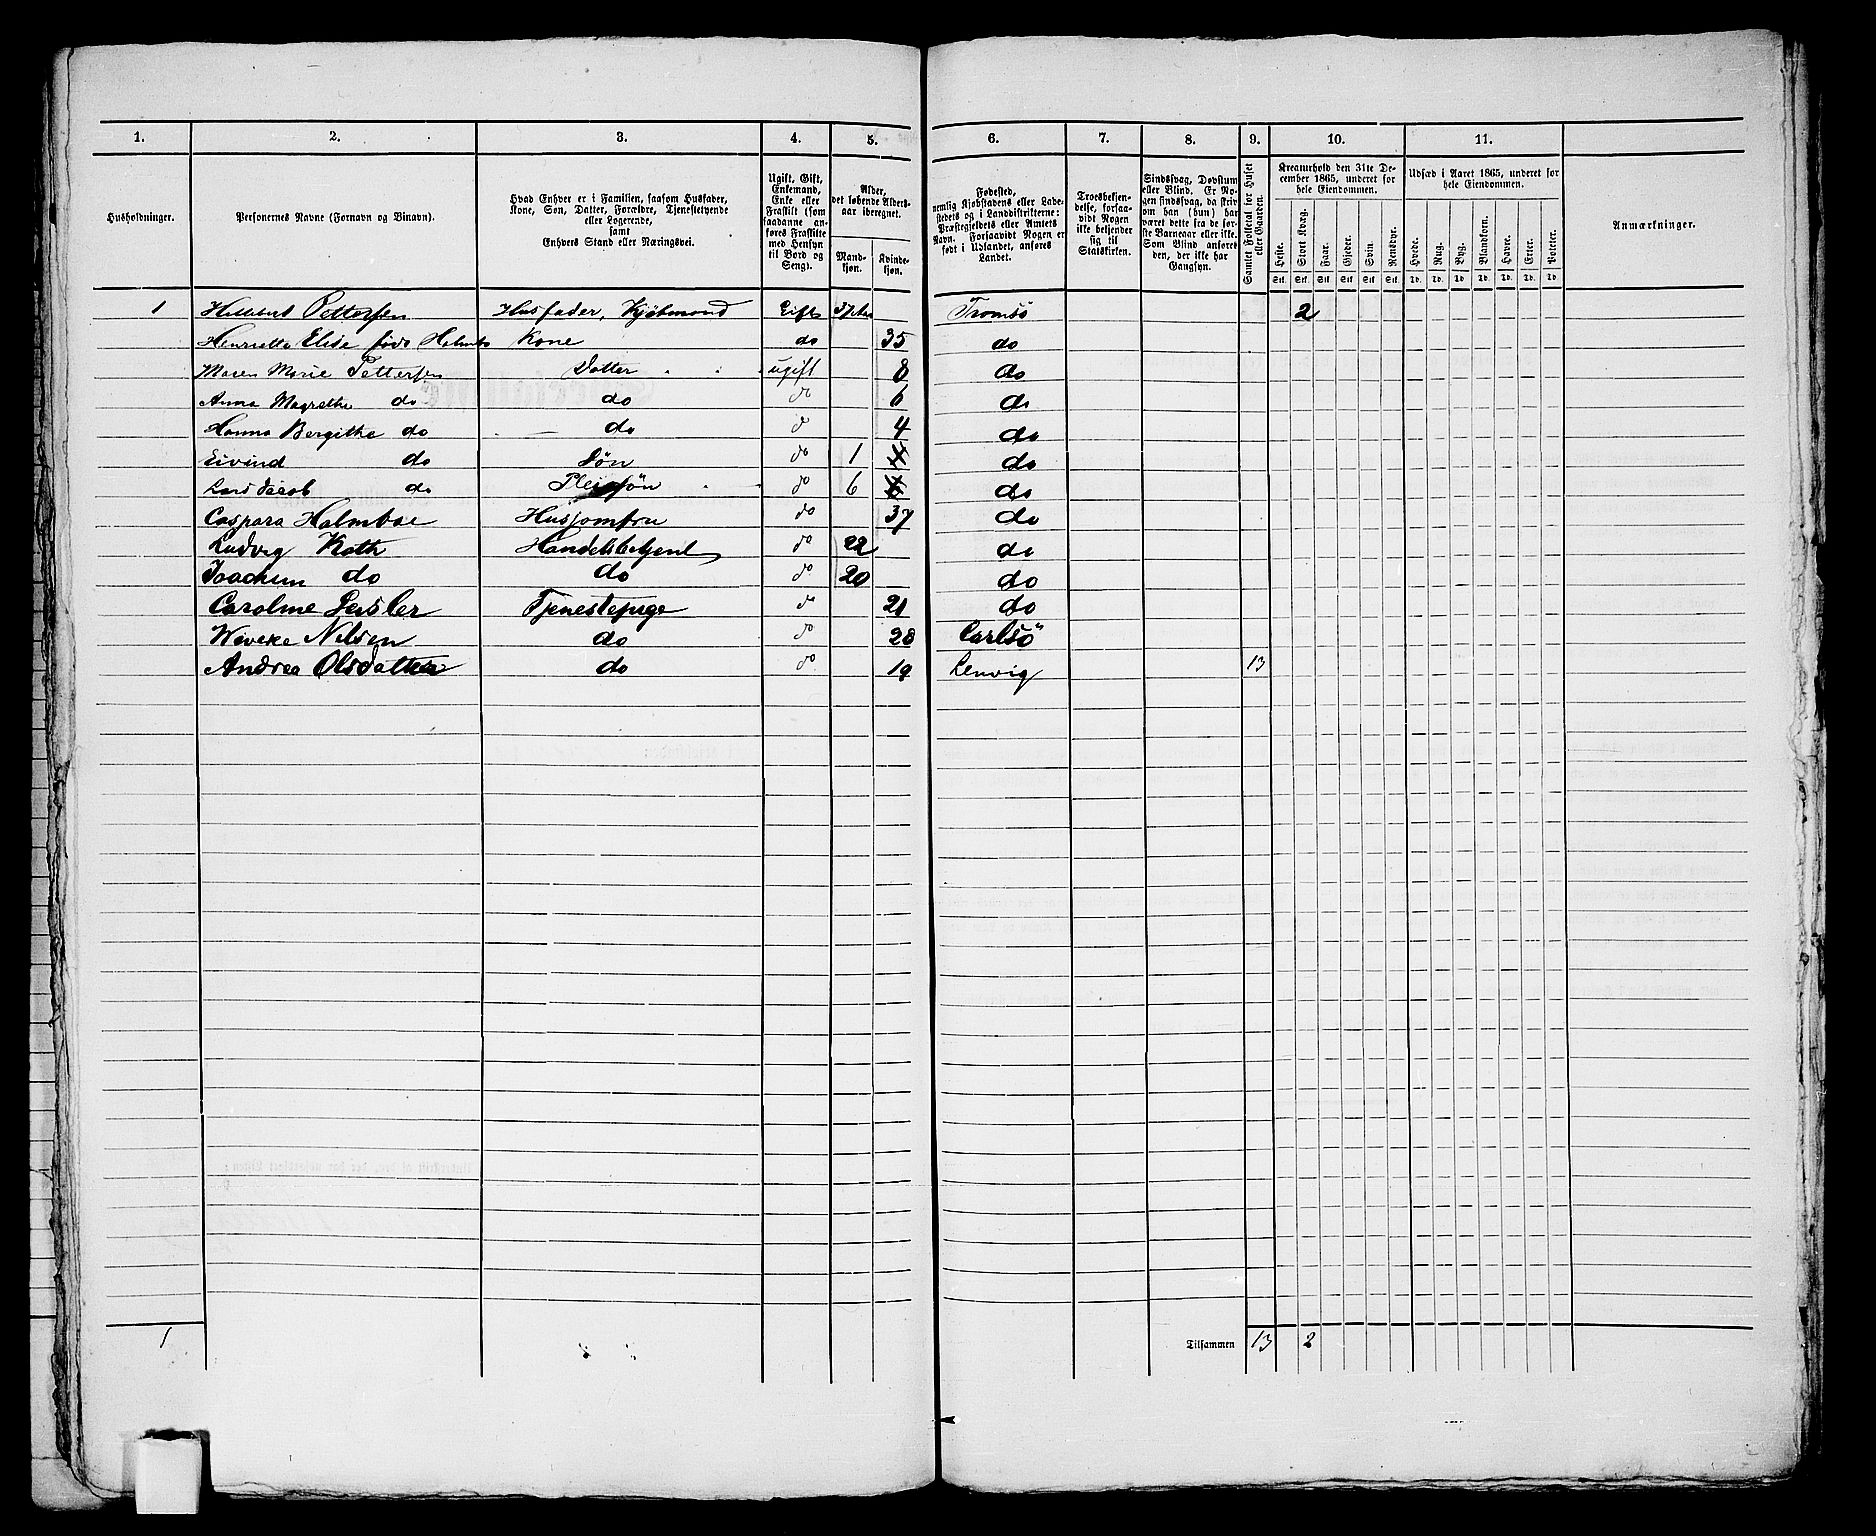 1. 2. 3. 4. 5. 6. 7. 8. 9. 10. 11.
Husholdninger.
Personernes Navne (Fornavn og Binavn).
Hvad Enhver er i Familien, saasom Husfader,
Kone, Søn, Datter, Forældre, Tjenestetyende
eller Logerende,
samt
Enhvers Stand eller Næringsvei.
Ugift, Gift,
Enkemand,
Enke eller
Fraskilt (som
saadanne an-
føres Fraskilte
med Hensyn
til Bord og
Seng).
Alder,
det løbende Alders-
aar iberegnet.
Mand-
kjøn.
Kvinde-
kjøn.
Fødested,
nemlig Kjøbstadens eller Lade-
stedets og i Landdistrikterne:
Præstegjeldets eller Amtets
Navn. Forsaavidt Nogen er
født i Udlandet, anføres
Landet.
Troesbekjen-
delse, forsaa-
vidt Nogen
ikke bekjender
sig til
Statskirken.
Sindssvag, Døvstum
eller Blind. Er No-
gen sindssvag, da skriv
om han (hun) har
været dette fra de før-
ste Barneaar eller ikke.
Som Blind anføres
den, der ikke har
Gangsyn.
Samlet Folketal for Huset
eller Gaarden.
Kreaturhold den 31te De-
cember 1865, underet for
hele Eiendommen.
Heste. Stort Kvæg. Faar. Gjeder. Svin. Rensdyr.
Stk. Stk. Stk. Stk. Stk. Stk.
Udsæd i Aaret 1865, underet for
hele Eiendommen.
Hvede. Rug. Byg. Blandkorn. Havre. Erter. Poteter.
Td. Td. Td. Td. Td. Td. Td.
Anmærkninger.
1 Pettersen Husfader, Kjøbmand Gift 37 Tromsö 2
Henriette Elise född Holmbo Kone do 35 do
Maren Marie Pettersen Datter ugift 8 do
Anna Magrethe do do do 6 do
Hanna Bergithe do do do 4 do
Eivind do Søn do 1 do
Lars Jacob do Pleiesøn do 6 do
Caspara Holmboe Husjomfru do 37 do
Ludvig Koth Handelsbetjent do 22 do
Joachim do do do 20 do
Caroline Tjenestepige do 21 do
Wiveke Nilsen do do 28 Carlsö
Andrea Olsdatter do do 19 Lenvig 13
1 Tilsammen 13 2